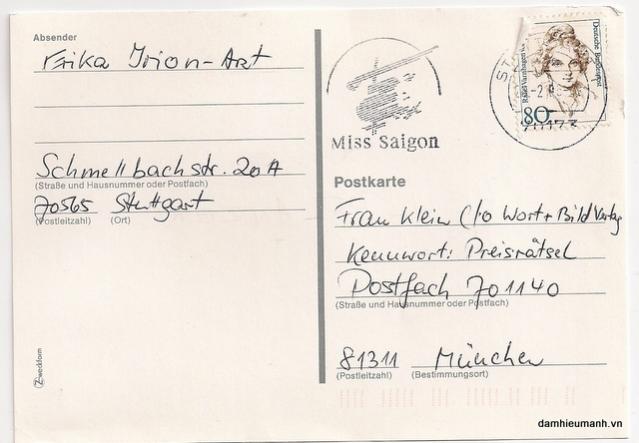 Absender
Erika Irion-Art
Schmellbachstr. 20A
(Straße und Hausnummer oder Postfach)
70565 Stuttgart
(Postleitzahl) (Ort)
Zweckform
Miss Saigon
Deutsche Bundespost
Rahel Varnhagen
80
70173
Postkarte
Frau Klein c/o Wort + Bild Verlag
Kennwort: Preisrätsel
Postfach 701140
(Straße und Hausnummer oder Postfach)
81311 München
(Postleitzahl) (Bestimmungsort)
damhieumanh.vn